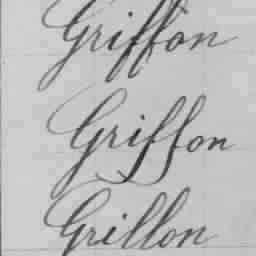 Griffon
Griffon
Grillon